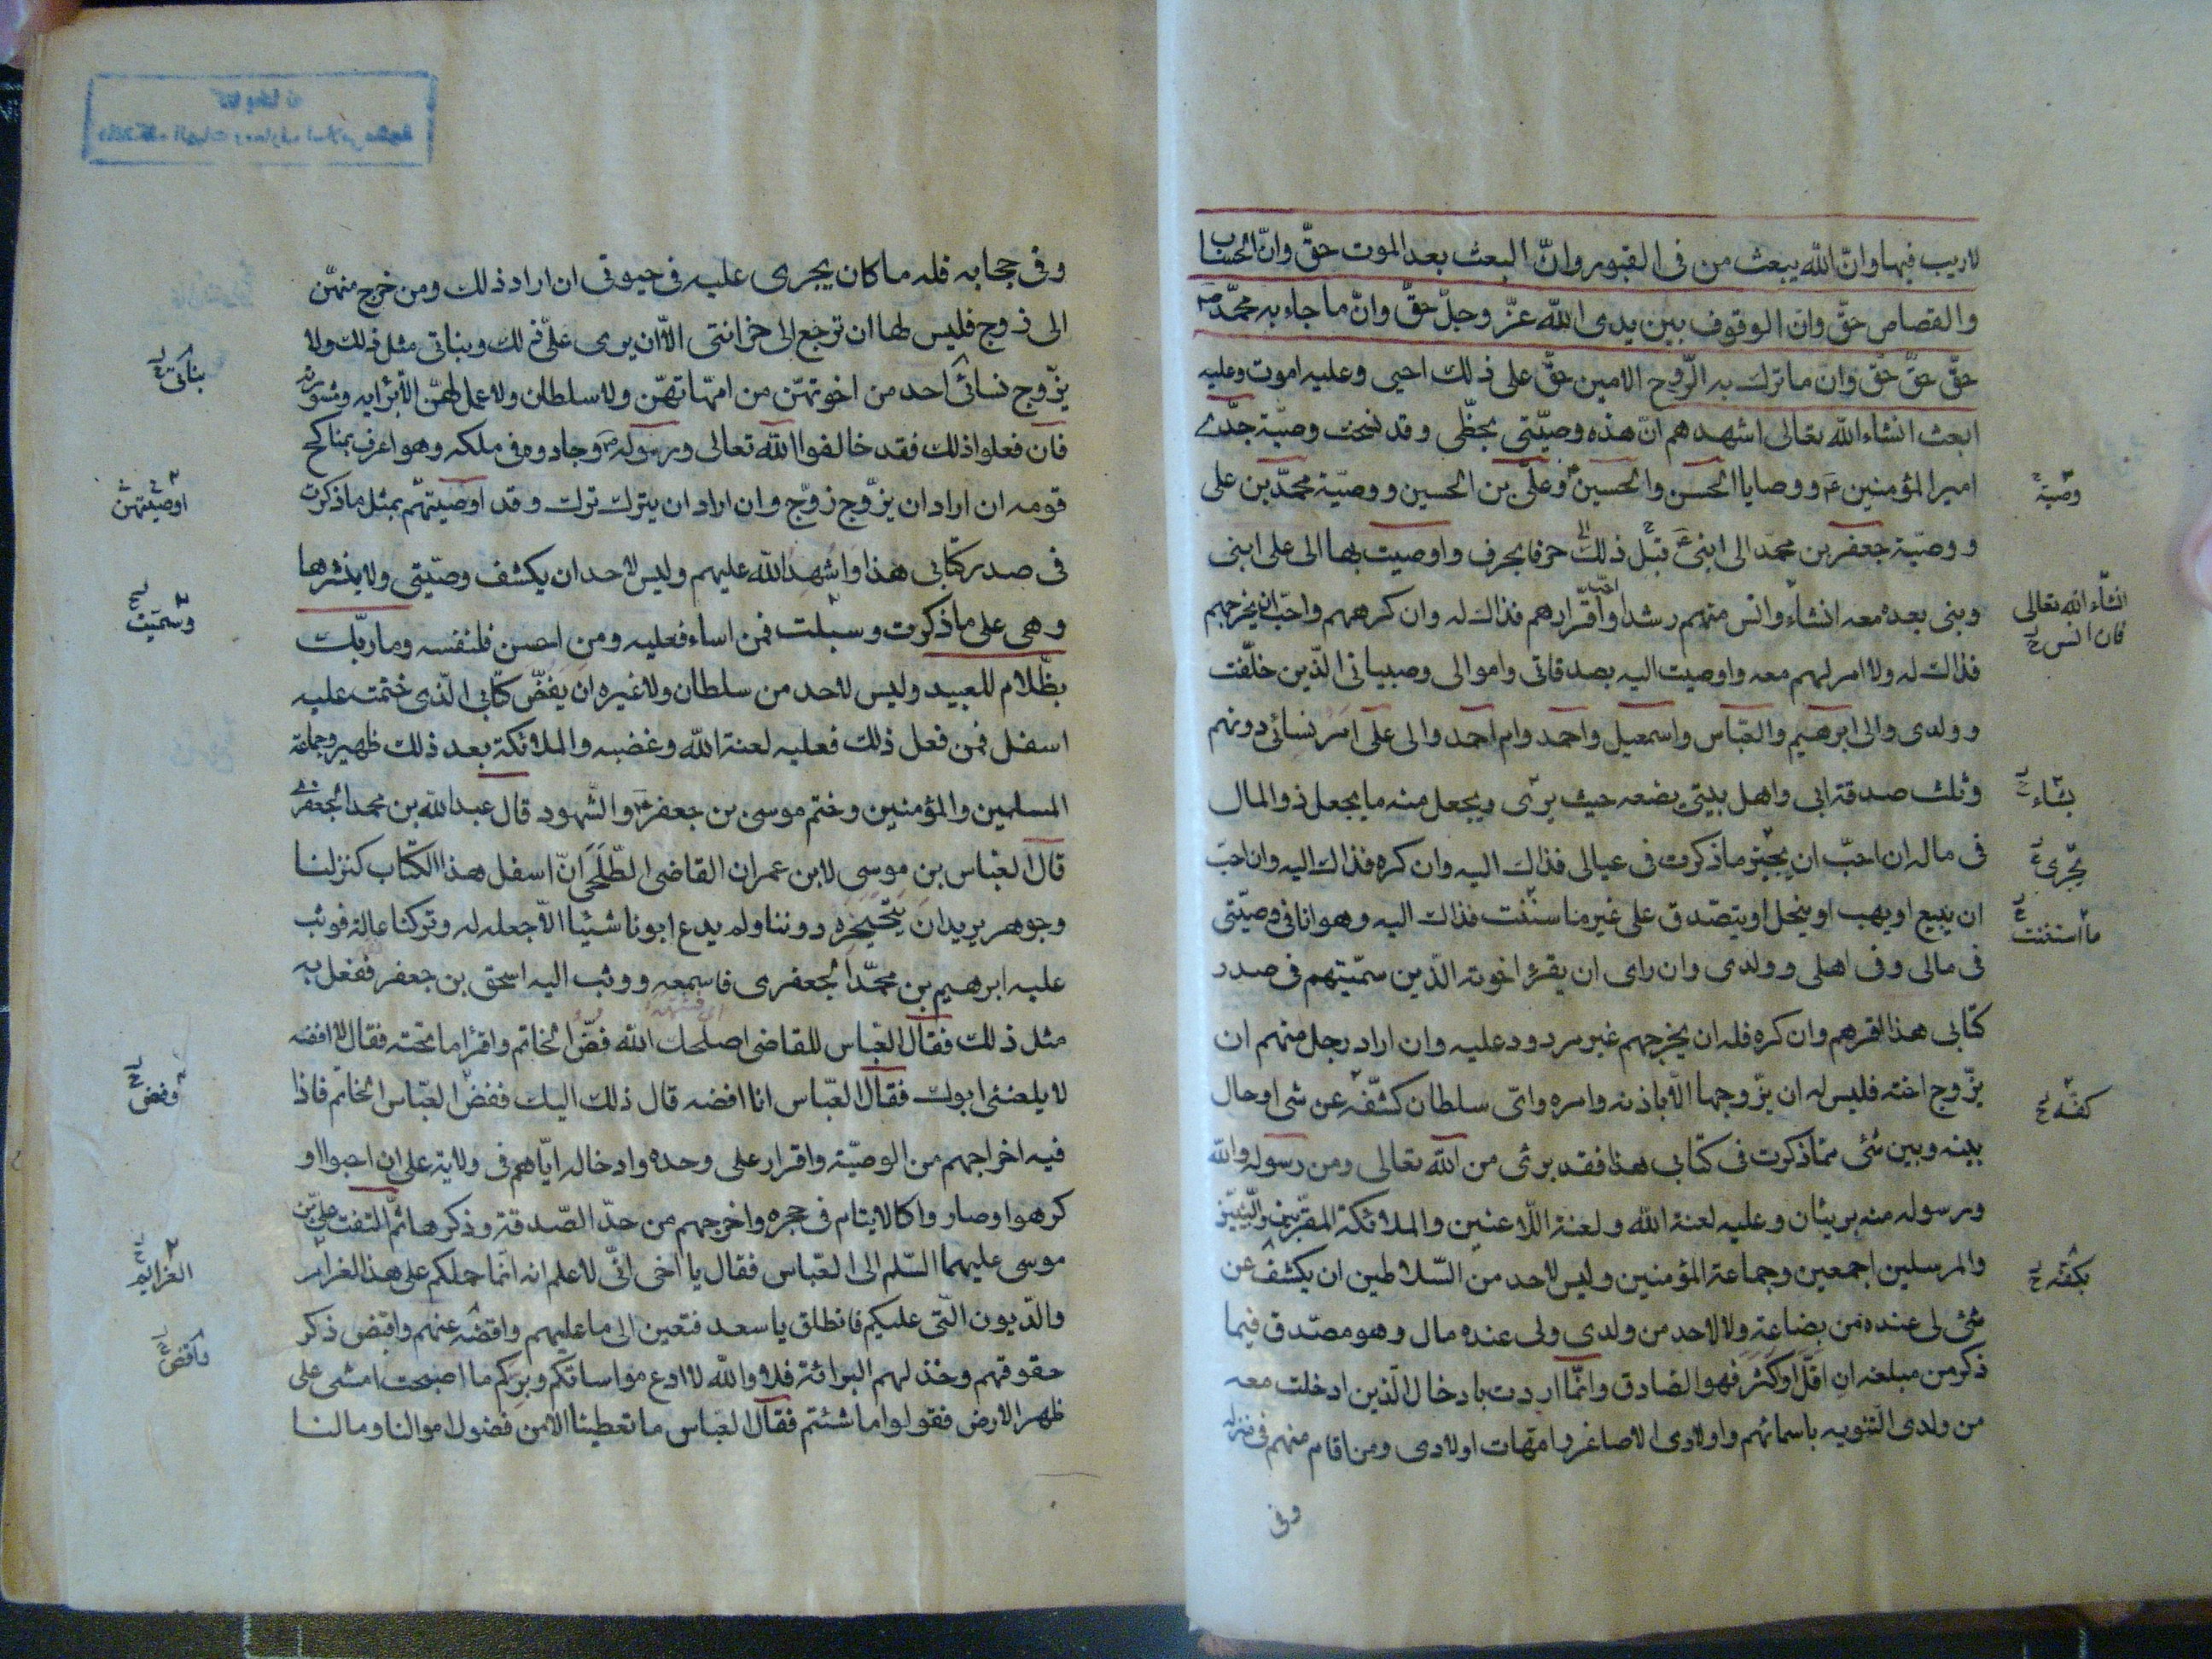 لاريب فيها وانّ الله يبعث من فى القبور وانّ البعث بعد الموت حقّ وانّ الحساب
والقصاص حقّ وان الوقوف بين يدى الله عزّ وجلّ حقّ وانّ ما جاء به محمّد ص
حقّ حقّ حقّ وان ما نزل به الرّوح الامين حقّ على ذلك احيى وعليه اموت وعليه
ابعث انشاء الله تعالى اشهدهم انّ هذه وصيّتى بخطّى وقد نسخت وصيّة جدّى
امير المؤمنين ع ووصايا الحسن والحسين وعلىّ بن الحسين ووصيّة محمّد بن على
ووصيّة جعفر بن محمّد الى ابنى ع قبل ذلك حرفا بحرف واوصيت بها الى على ابنى
وبنى بعده معه انشاء وانس منهم رشدا واحبّ اقرارهم فذاك له وان كرههم واحبّ ان يخرجهم
فذاك له ولا امر لهم معه واوصيت اليه بصدقاتى واموالى وصبيانى الّذين خلّفت
وولدى والى ابرهيم والعبّاس واسمعيل واحمد وام احمد والى على امر نسائى دونهم
وثلث صدقة ابى واهل بيتى يضعه حيث يرى ويجعل منه ما يجعل ذو المال
فى ماله ان احبّ ان يجيز ما ذكرت فى عيالى فذاك اليه وان كره فذاك اليه وان احبّ
ان يبيع او يهب او ينحل او يتصدق على غير ما سننت فذاك اليه وهو انا فى وصيّتى
فى مالى وفى اهلى وولدى وان راى ان يقرّ اخوته الّذين سمّيتهم فى صدر
كتابى هذا اقرهم وان كره فله ان يخرجهم غير مردود عليه وان اراد رجل منهم ان
يزّوج اخته فليس له ان يزّوجها الّا باذنه وامره واىّ سلطان كشّفه عن شى او حال
بينه وبين شئى ممّا ذكرت فى كتابى هذا فقد برئى من الله تعالى ومن رسوله والله
ورسوله منه بريئان وعليه لعنة الله ولعنة اللّاعنين والملائكة المقرّبين والنّبيّين
والمرسلين اجمعين وجماعة المؤمنين وليس لاحد من السّلاطين ان يكشف عن
شئى لى عنده من بضاعة ولا لاحد من ولدى ولى عنده مال وهو مصّدق فيما
ذكر من مبلغه ان اقلّ او كثر فهو الصّادق وانّما اردت بادخال الّذين ادخلت معه
من ولدى التنويه باسمائهم واولادى الاصاغر وامّهات اولادى ومن اقام منهم فى منزله
وفى
وصيّة
انشاء الله تعالى
فان انس
يشاء
تجرى
ما استثنت
كفّه
يكفّه
وفى حجابه فله ما كان يجرى عليه فى حيوتى ان اراد ذلك ومن خرج منهّن
الى زوج فليس لها ان ترجع الى خزانتى الّا ان يرى علىّ ذلك وبناتى مثل ذلك ولا
يزّوج نسائى احد من اخوتهّن من امّهاتهّن ولا سلطان ولا عمل لهّن الّا برايه ومشورته
فان فعلوا ذلك فقد خالفوا الله تعالى ورسوله ص وجادوه فى ملكه وهو اعرف بمناكح
قومه ان اراد ان يزّوج زوّج وان اراد ان يترك ترك وقد اوصيتهّم بمثل ما ذكرت
فى صدر كتابى هذا واشهد الله عليهم وليس لاحد ان يكشف وصيّتى ولا ينشرها
وهى على ما ذكرت وسبلت فمن اساء فعليه ومن احسن فلنفسه وما ربّك
بظّلام للعبيد وليس لاحد من سلطان ولا غيره ان يفضّ كتابى الّذى ختمت عليه
اسفل فمن فعل ذلك فعليه لعنة الله وغضبه والملائكة بعد ذلك ظهير وجماعة
المسلمين والمؤمنين وختم موسى بن جعفر والشّهود قال عبدالله بن محمد الجعفرى
قال العبّاس بن موسى لابن عمران القاضى الطّلحى انّ اسفل هذا الكتاب كنز لنا
وجوهر يريد ان يحتجزه دوننا ولم يدع ابونا شيئا الّا جعله له وتركنا عالة فوثب
عليه ابرهيم بن محمّد الجعفرى فاسمعه ووثب اليه اسحق بن جعفر ففعل به
مثل ذلك فقال العبّاس للقاضى اصلحك الله فضّ الخاتم واقرأ ما تحته فقال لا افضه
لا يلعننى ابوك فقال العبّاس انا افضه قال ذلك اليك ففضّ العبّاس الخاتم فاذا
فيه اخراجهم من الوصيّة واقرار على وحده وادخاله ايّاهم فى ولاية على ان احبوا او
كرهوا وصاروا كالايتام فى حجره واخرجهم من حدّ الصّدقة وذكرها ثمّ التفت علىّ بن
موسى عليهما السّلم الى العّباس فقال يا اخى انّى لاعلم انه انّما حملكم على هذا الغرام
والدّيون الّتى عليكم فانطلق يا سعد فتعين الى ما عليهم واقضه عنهم واقبض ذكر
حقوقهم وخذ لهم البرائة فلا والله لا ادع مواساتكم وبرّكم ما اصبحت امشى على
ظهر الارض فقولوا ما شئتم فقال العّباس ما تعطينا الّا من فضول اموالنا وما لنا
بناتى
اوصيتهن
وسميت
وفض
الغرايم
واقض